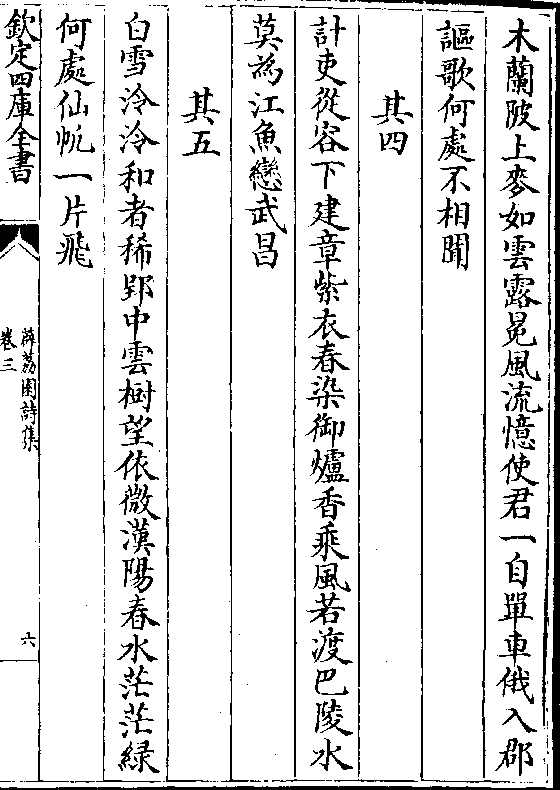 木蘭陂上麥如雲露冕風流憶使君一自單車俄入郡
謳歌何處不相聞
其四
計吏從容下建章紫衣春染御爐香乘風若渡巴陵水
莫為江魚戀武昌
其五
白雪泠泠和者稀郢中雲樹望依微漢陽春水茫茫緑
何處仙帆一片飛
欽定四庫全書
薜荔園詩集
卷三
六